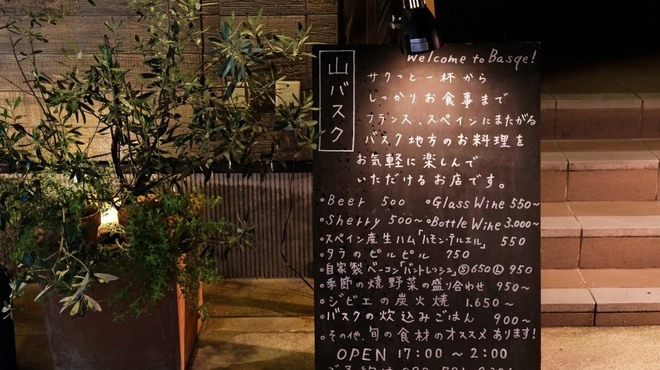 山バスク
Welcome to Basqe!
サクっと一杯から
しっかりお食事まで
フランス、スペインにまたがる
バスク地方のお料理を
お気軽に楽しんで
いただけるお店です。
・Beer 500 ・Glass Wine 550~
・Sherry 500~ ・Bottle Wine 3.000~
・スペイン産生ハム「ハモン・テルエル」 550
・タラのピルピル 750
・自家製ベーコン「バントレッシュ」Ⓢ650Ⓛ950
・季節の焼野菜の盛り合わせ 950~
・ジビエの炭火焼 1.650~
・バスクの炊込みごはん 900~
・その他、旬の食材のオススメあります!
OPEN 17:00 ~ 2:00